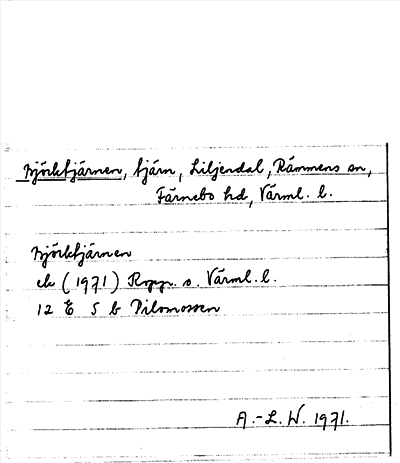 Björktjärnen, tjärn, Liljendal, Rämmens sn,
Färnebo hd, Värml. l.
Björktjärnen
ek (1971) Ropp. o. Värml. l.
12 E 5 b Pilomossen
A.-L. W. 1971.